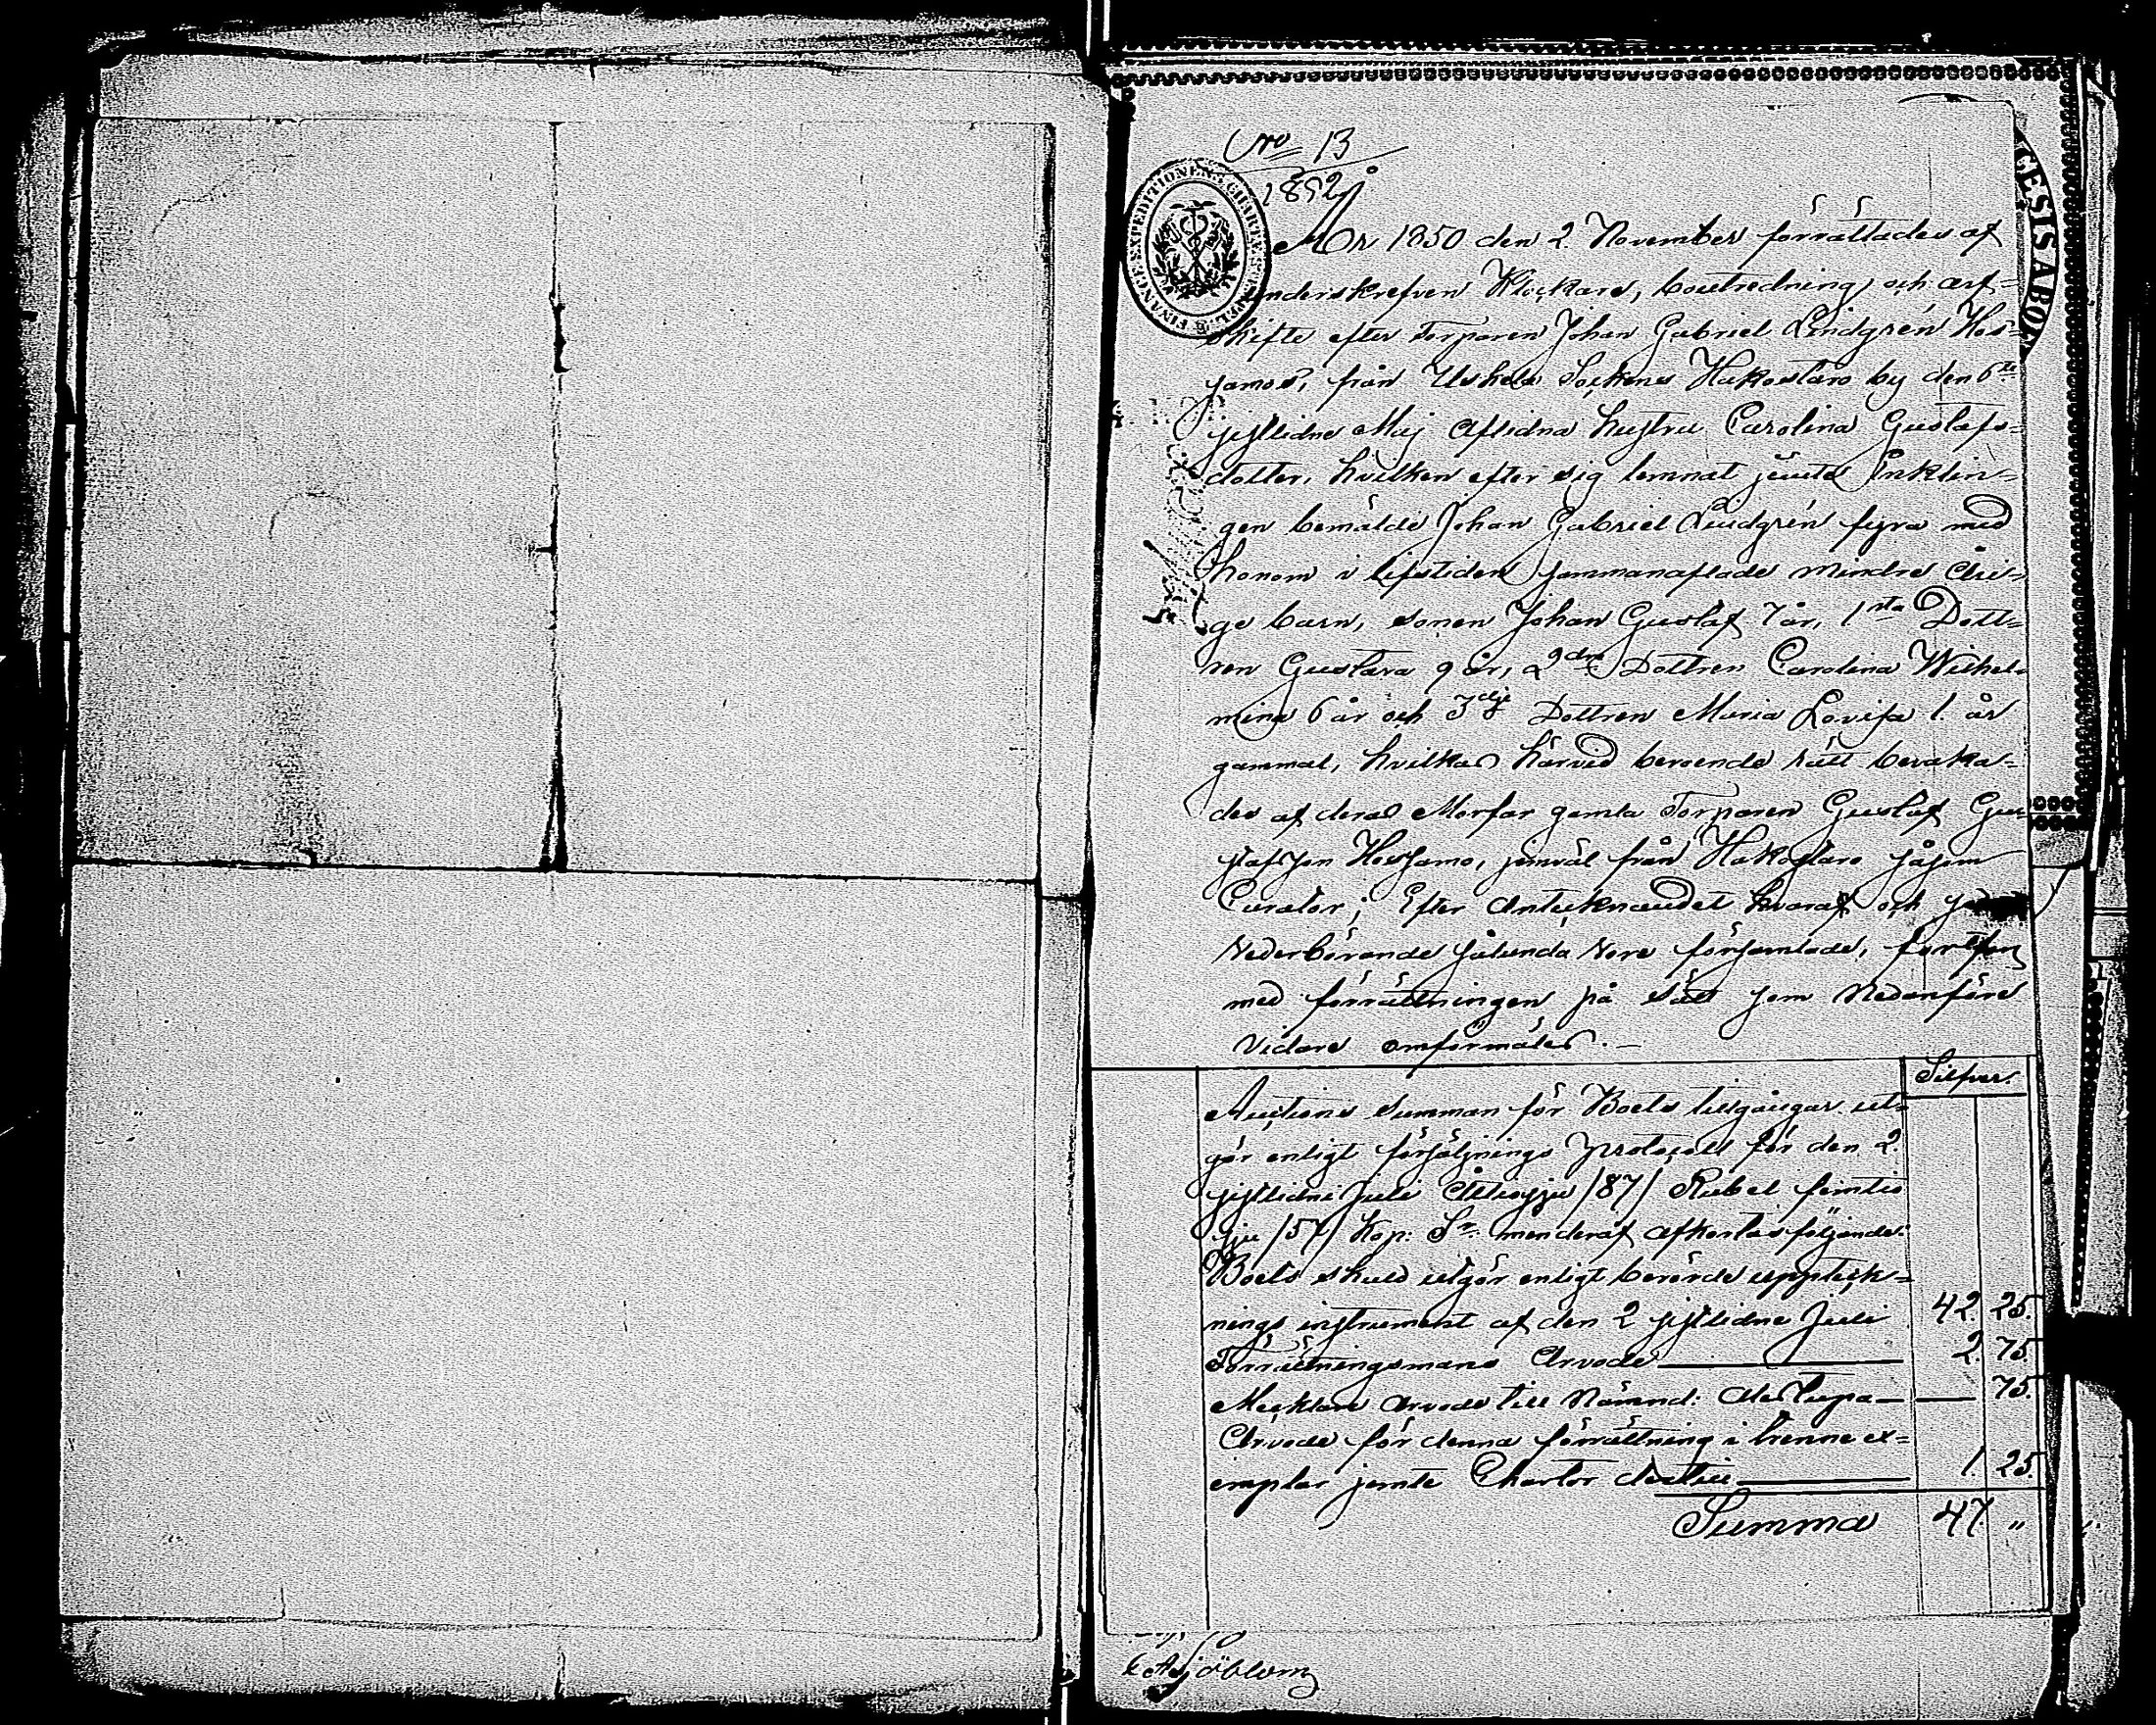 No 13
1852
År 1850 den 2 November förrättades af
underskrefven Klockare, boutredning och arf-
skifte efter Torparen Johan Gabriel Lindgrén Hos-
jamos, från Uskela Sockens Hakostaro by den 6te
sistlidne Maj aflidna hustru Carolina Gustafs-
dotter, hvilken efter sig lemnat jemte Enklin-
gen bemälde Johan Gabriel Lindgrén fyra med
honom i lifstiden sammanaflade mindre åri-
ge barn, sonen Johan Gustaf 7 år, 1sta Dott-
ren Gustava 9 år, 2dra Dottren Carolina Wilhel-
mina 6 år och 3dje Dottren Maria Lovisa 1. år
gammal, hvilkas härvid beroende rätt bevaka-
des af deras Morfar gamla Torparen Gustaf Gu-
stafsson Hossjamo, jemväl från Hakostaro såsom
Curator; Efter antecknandet hvaraf och
Vederbörande sålunda Vore församlade,
med förrättningen på sätt som Nedanföre
Vidare omförmäles. —
Silfver.
Auctions Summan för Boets tillgångar ut-
gör enligt försäljnings protocoll för den 2.
sistlidne Juli Åttiosju /87/ Rubel femtio
sju /57/ Kop: Sr. men deraf afkortas följande:
Boets skuld utgör enligt berörde uppteck-
nings instrument af den 2 sistlidne Juli 42. 25.
Förrättningsmans Arvode 2. 75.
Mecklare arvode till Nämnd: — 75.
Arvode för denna förrättning i trenne ex-
emplar jemte Chartor dertill 1. 25.
Summa 47 "
Sjöblom
FINANCE EXPEDITIONEN